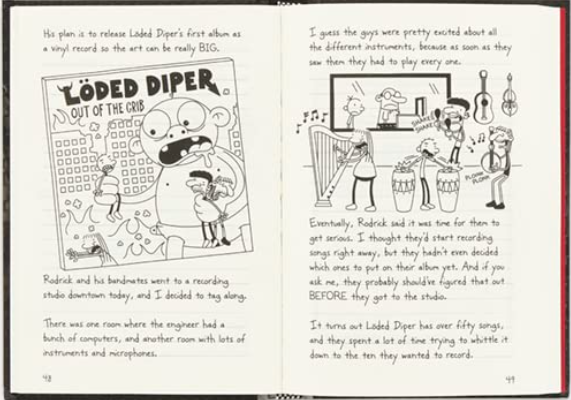 His plan is to release Löded Diper's first album as
a vinyl record so the art can be really BIG.
LÖDED DIPER
OUT OF THE CRIB
Rodrick and his bandmates went to a recording
studio downtown today, and I decided to tag along.
There was one room where the engineer had a
bunch of computers, and another room with lots of
instruments and microphones.
48
I guess the guys were pretty excited about all
the different instruments, because as soon as they
saw them they had to play every one.
SHAKE
SHAKE
PLONK
PLONK
Eventually, Rodrick said it was time for them to
get serious. I thought they'd start recording
songs right away, but they hadn't even decided
which ones to put on their album yet. And if you
ask me, they probably should've figured that out
BEFORE they got to the studio.
It turns out Löded Diper has over fifty songs,
and they spent a lot of time trying to whittle it
down to the ten they wanted to record.
49